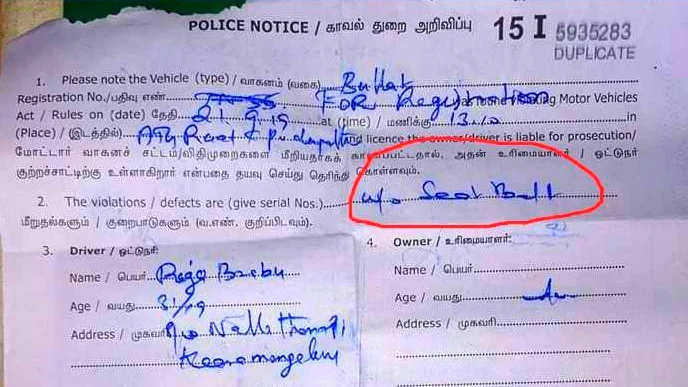 POLICE NOTICE / காவல் துறை அறிவிப்பு 15 I 5935283
DUPLICATE
1. Please note the Vehicle (type) / வாகனம் (வகை) Bullat
Registration No./பதிவு எண் FOR Registration
Motor Vehicles
Act / Rules on (date) தேதி 21.9.19 at (time) / மணிக்கு 13.10 in
(Place) / (இடத்தில்) licence the owner/driver is liable for prosecution/
மோட்டார் வாகனச் சட்டம்/விதிமுறைகளை மீறியதாகக் காணப்பட்டதால், அதன் உரிமையாளர் / ஓட்டுநர்
குற்றச்சாட்டிற்கு உள்ளாகிறார் என்பதை தயவு செய்து தெரிந்து கொள்ளவும்.
2. The violations / defects are (give serial Nos.) w/o Seat Belt
மீறுதல்கள் / குறைபாடுகள் (வ.எண். குறிப்பிடவும்).
3. Driver / ஓட்டுநர்:
Name / பெயர் Babu
Age / வயது 31/19
Address / முகவரி
4. Owner / உரிமையாளர்:
Name / பெயர்
Age / வயது
Address / முகவரி